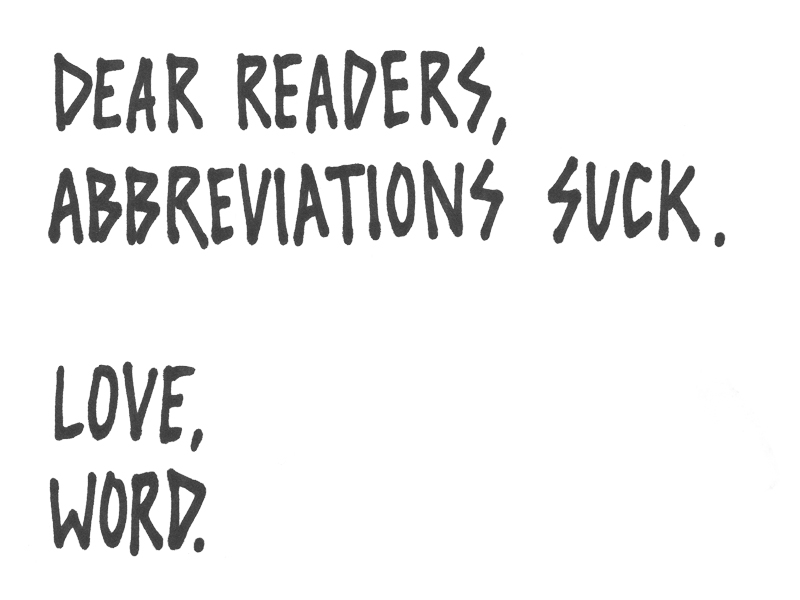 DEAR READERS,
ABBREVIATIONS SUCK.
LOVE,
WORD.